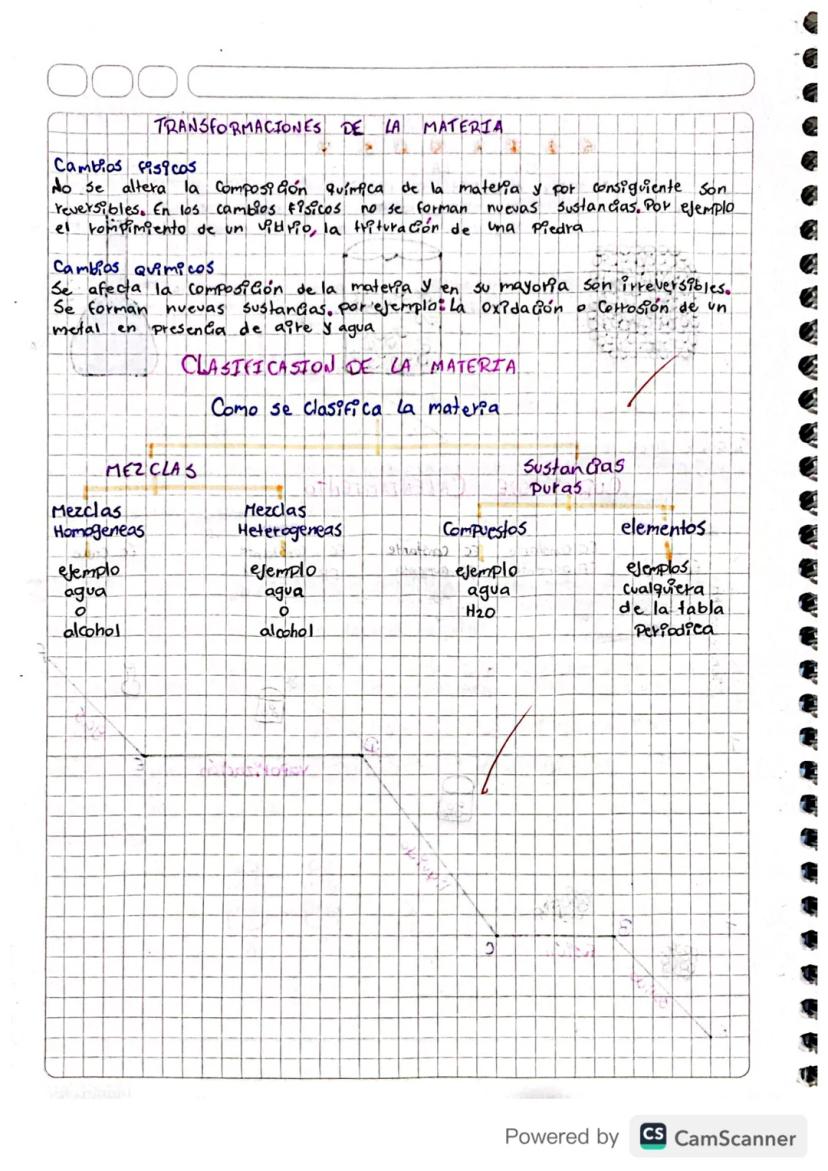 TRANSFORMACIONES DE LA MATERIA
Cambios fisicos
No se altera la composición química de la materia y por consiguiente son
reversibles. En los cambios físicos no se forman nuevas sustancias. Por ejemplo
el rompimiento de un vidrio, la trituración de una piedra
Cambios quimicos
Se afecta la composición de la materia y en su mayoria son irreversibles.
Se forman nuevas sustancias. por ejemplo: La oxidación o corrosión de un
metal en presencia de aire y agua
CLASIFICASION DE LA MATERIA
Como se clasifica la materia
MEZCLAS
Sustancias
Puras
Mezclas
Homogeneas
Mezclas
Heterogeneas
Compuestos
elementos
ejemplo
agua
o
alcohol
ejemplo
agua
o
alcohol
ejemplo
agua
H2O
ejemplos
cualquiera
de la tabla
Periodica
Powered by CS CamScanner